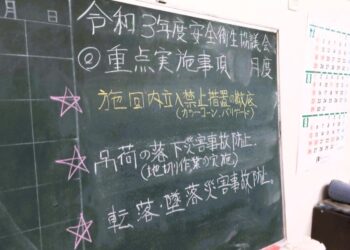 月 日
令和3年度安全衛生協議会
◎重点実施事項 月度
☆ 施回内立入禁止措置の徹底
(カラーコーン、バリケード)
☆ 吊荷の落下災害事故防止.
(地切作業の実施)
☆ 転落.墜落災害事故防止.